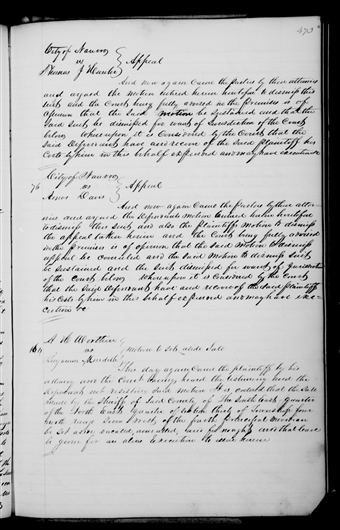 470
City of Nauvoo
vs } Appeal
Thomas J Hunter
And now again Came the parties by their attornies
and argued the motion entered herein heretofore to dismiss this
suit and the Court being fully advised in the premises is of
opinion that the said motion be sustained and that the
said suit be dismissed for want of jurisdiction of the Court
below Whereupon it is Considered by the Court that the
said defendant have and recover of the said plaintiff his
Costs by him in this behalf expended and may have execution &c
City of Nauvoo
76 vs } Appeal
Amos Davis
And now again Came the parties by their attor
nies and argued the defendants motion entered herein heretofore
to dismiss this suit, and also the plaintiffs motion to dismiss
the appeal taken herein and the Court being fully advised
in the premises is of opinion that the said motion to dismiss
appeal be overruled and the said motion to dismiss suit
be sustained and the suit dismissed for want of jurisdiction
of the Court below. Whereupon it is Considered by the Court
that the said defendant have and recover of the said plaintiff
his Costs by him in this behalf expended and may have exe-
cution &c
A H Worthen
164 vs } Motion to set aside Sale
Meredith
This day again Came the plaintiff by his
attorney and the Court having heard the testimony and the
defendant not resisting the motion It is ordered that the sale
made by the Sheriff of said County of The South East quarter
of the North East quarter of section thirty of Township four
north range seven west of the fourth principal meridian
be set aside vacated, annulled, and for nought and that leave
be given for an alias execution to issue herein